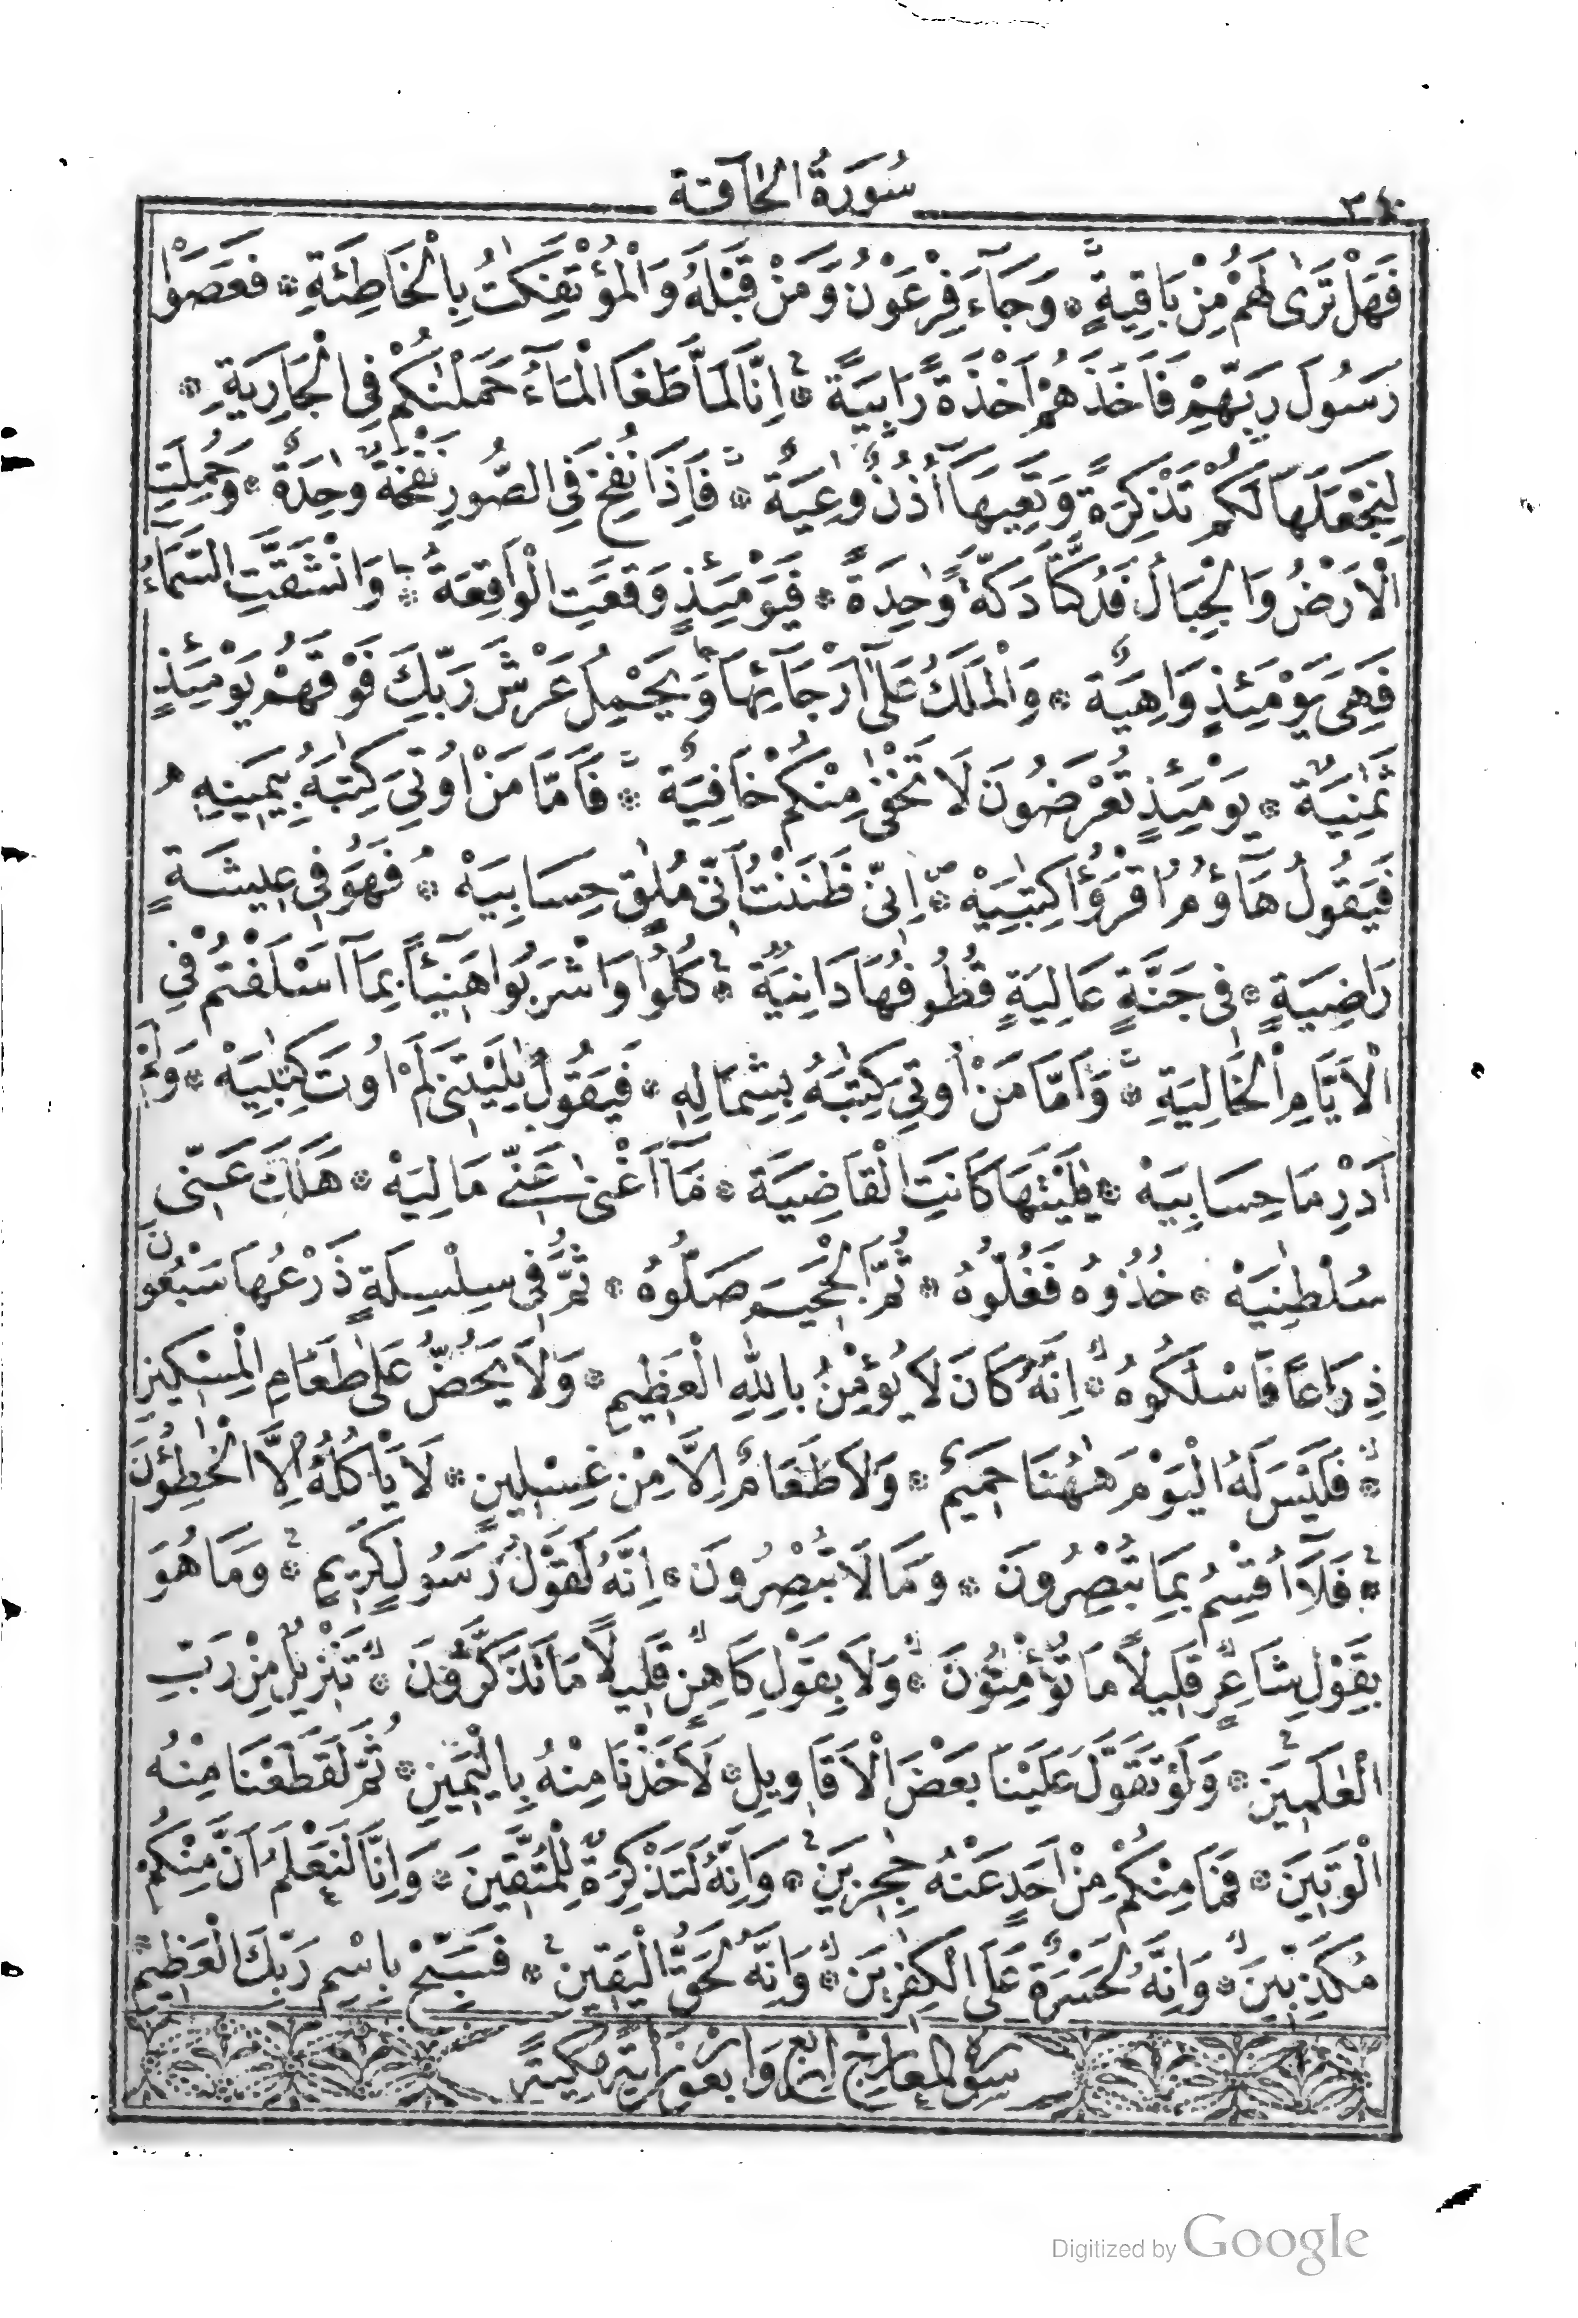 سُورَةُ الْحَآقَّة
٣٤٠
فَهَلْ تَرٰى لَهُمْ مِنْ بَاقِيَةٍ ۞ وَجَآءَ فِرْعَوْنُ وَمَنْ قَبْلَهُ وَالْمُؤْتَفِكٰتُ بِالْخَاطِئَةِ ۞ فَعَصَوْا
رَسُولَ رَبِّهِمْ فَاَخَذَهُمْ اَخْذَةً رَابِيَةً ۞ اِنَّا لَمَّا طَغَا الْمَآءُ حَمَلْنٰكُمْ فِى الْجَارِيَةِ ۞
لِنَجْعَلَهَا لَكُمْ تَذْكِرَةً وَتَعِيَهَآ اُذُنٌ وٰعِيَةٌ ۞ فَاِذَا نُفِخَ فِى الصُّورِ نَفْخَةٌ وٰحِدَةٌ ۞ وَحُمِلَتِ
الْاَرْضُ وَالْجِبَالُ فَدُكَّتَا دَكَّةً وٰحِدَةً ۞ فَيَوْمَئِذٍ وَقَعَتِ الْوَاقِعَةُ ۞ وَانْشَقَّتِ السَّمَآءُ
فَهِىَ يَوْمَئِذٍ وَاهِيَةٌ ۞ وَالْمَلَكُ عَلٰٓى اَرْجَآئِهَا وَيَحْمِلُ عَرْشَ رَبِّكَ فَوْقَهُمْ يَوْمَئِذٍ
ثَمٰنِيَةٌ ۞ يَوْمَئِذٍ تُعْرَضُونَ لَا تَخْفٰى مِنْكُمْ خَافِيَةٌ ۞ فَاَمَّا مَنْ اُوتِىَ كِتٰبَهُ بِيَمِينِهِ
فَيَقُولُ هَآؤُمُ اقْرَؤُا كِتٰبِيَهْ ۞ اِنِّى ظَنَنْتُ اَنِّى مُلٰقٍ حِسَابِيَهْ ۞ فَهُوَ فِى عِيشَةٍ
رَاضِيَةٍ ۞ فِى جَنَّةٍ عَالِيَةٍ قُطُوفُهَا دَانِيَةٌ ۞ كُلُوا وَاشْرَبُوا هَنِيٓئًا بِمَآ اَسْلَفْتُمْ فِى
الْاَيَّامِ الْخَالِيَةِ ۞ وَاَمَّا مَنْ اُوتِىَ كِتٰبَهُ بِشِمَالِهِ ۞ فَيَقُولُ يٰلَيْتَنِى لَمْ اُوتَ كِتٰبِيَهْ ۞ وَلَمْ
اَدْرِ مَا حِسَابِيَهْ ۞ يٰلَيْتَهَا كَانَتِ الْقَاضِيَةَ ۞ مَآ اَغْنٰى عَنِّى مَالِيَهْ ۞ هَلَكَ عَنِّى
سُلْطٰنِيَهْ ۞ خُذُوهُ فَغُلُّوهُ ۞ ثُمَّ الْجَحِيمَ صَلُّوهُ ۞ ثُمَّ فِى سِلْسِلَةٍ ذَرْعُهَا سَبْعُونَ
ذِرَاعًا فَاسْلُكُوهُ ۞ اِنَّهُ كَانَ لَا يُؤْمِنُ بِاللّٰهِ الْعَظِيمِ ۞ وَلَا يَحُضُّ عَلٰى طَعَامِ الْمِسْكِينِ
۞ فَلَيْسَ لَهُ الْيَوْمَ هٰهُنَا حَمِيمٌ ۞ وَلَا طَعَامٌ اِلَّا مِنْ غِسْلِينٍ ۞ لَا يَاْكُلُهُ اِلَّا الْخٰطِؤُنَ
۞ فَلَآ اُقْسِمُ بِمَا تُبْصِرُونَ ۞ وَمَا لَا تُبْصِرُونَ ۞ اِنَّهُ لَقَوْلُ رَسُولٍ كَرِيمٍ ۞ وَمَا هُوَ
بِقَوْلِ شَاعِرٍ قَلِيلًا مَا تُؤْمِنُونَ ۞ وَلَا بِقَوْلِ كَاهِنٍ قَلِيلًا مَا تَذَكَّرُونَ ۞ تَنْزِيلٌ مِنْ رَبِّ
الْعٰلَمِينَ ۞ وَلَوْ تَقَوَّلَ عَلَيْنَا بَعْضَ الْاَقَاوِيلِ ۞ لَاَخَذْنَا مِنْهُ بِالْيَمِينِ ۞ ثُمَّ لَقَطَعْنَا مِنْهُ
الْوَتِينَ ۞ فَمَا مِنْكُمْ مِنْ اَحَدٍ عَنْهُ حٰجِزِينَ ۞ وَاِنَّهُ لَتَذْكِرَةٌ لِلْمُتَّقِينَ ۞ وَاِنَّا لَنَعْلَمُ اَنَّ مِنْكُمْ
مُكَذِّبِينَ ۞ وَاِنَّهُ لَحَسْرَةٌ عَلَى الْكٰفِرِينَ ۞ وَاِنَّهُ لَحَقُّ الْيَقِينِ ۞ فَسَبِّحْ بِاسْمِ رَبِّكَ الْعَظِيمِ
سورة المعارج اربع واربعون اية مكية
Digitized by Google